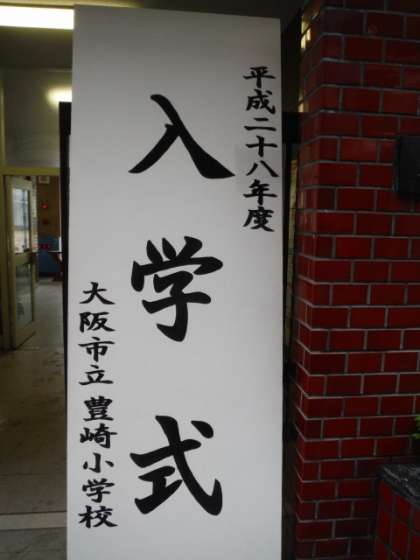 平成二十八年度
入学式
大阪市立 豊崎小学校